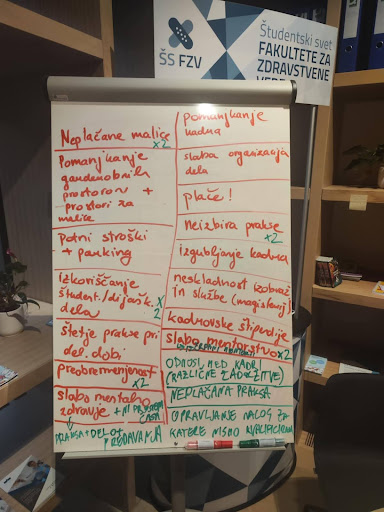 ŠS FZV
Študentski svet
FAKULTETE ZA
ZDRAVSTVENE
Neplačane malice
x2
Pomanjkanje
garderobnih
prostorov +
prostori za
malice
Potni stroški
+ parking
Izkoriščanje
študent./dijašk.
dela
x2
štetje prakse pri
del. dobi
Preobremenjenost
x2
slabo mentalno
zdravje
PRAKSA + DELO +
PREDAVANJA
Pomanjkanje
kadra
slaba organizacija
dela
plače!
Neizbira prakse
x2
izgubljanje kadra
neskladnost izobraž.
in službe (magisterij)
kadrovske štipendije
slabo mentorstvo x2
ODNOSI MED KADR.
(RAZLIČNE ZADOLŽITVE)
NEPLAČANA PRAKSA
OPRAVLJANJE NALOG ZA
KATERE NISMO KVALIFICIRANI